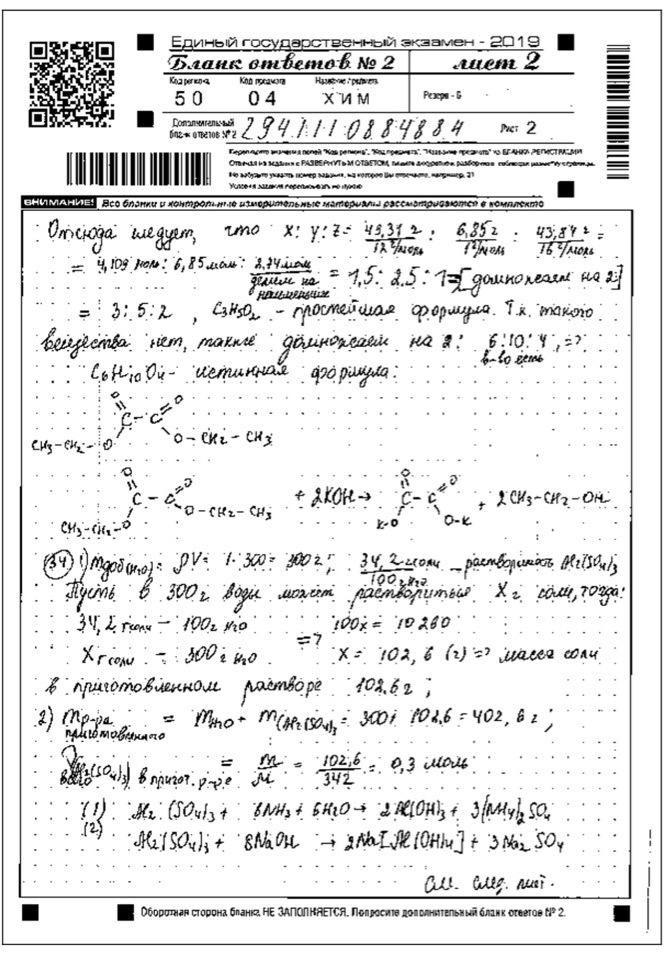 Единый государственный экзамен - 2019
Бланк ответов № 2 лист 2
Код региона Код предмета Название предмета
50 04 ХИМ Резерв - 6
Дополнительный бланк ответов № 2 2941110884884 Лист 2
Перепишите значения полей "Код региона", "Код предмета", "Название предмета" из БЛАНКА РЕГИСТРАЦИИ
Отвечая на задания с РАЗВЕРНУТЫМ ОТВЕТОМ, пишите аккуратно и разборчиво, соблюдая разметку страницы.
Не забудьте указать номер задания, на которое Вы отвечаете, например, 31
Условия задания переписывать не нужно
ВНИМАНИЕ! Все бланки и контрольные измерительные материалы рассматриваются в комплекте
Отсюда следует, что x: y: z = 49,31 г / 12 г/моль : 6,85 г / 1 г/моль : 43,84 г / 16 г/моль =
= 4,109 моль : 6,85 моль : 2,74 моль делим на наименьшее = 1,5 : 2,5 : 1 = [домножаем на 2]
= 3:5:2, C3H5O2 - простейшая формула. Т.к. такого
вещества нет, также домножаем на 2: 6:10:4, =>
в-во есть
C6H10O4 - истинная формула:
O O
C - C
CH3-CH2-O O-CH2-CH3
O O O O
C - C O-CH2-CH3 + 2KOH → C - C + 2CH3-CH2-OH
CH3-CH2-O K-O O-K
34 1) mдоб(H2O) = ρV = 1·300 = 300 г; 34,2 г соли / 100 г H2O - растворимость Al2(SO4)3
Пусть в 300 г воды может раствориться X г соли, тогда:
34,2 г соли - 100 г H2O 100x = 10260
X г соли - 300 г H2O => X = 102,6 (г) => масса соли
в приготовленном растворе 102,6 г;
2) mр-ра приготовленного = mH2O + m(Al2(SO4)3 = 300 + 102,6 = 402,6 г;
Al2(SO4)3 всего в пригот. р-ре = m/M = 102,6/342 = 0,3 моль
(1) Al2(SO4)3 + 6NH3 + 6H2O → 2Al(OH)3 + 3(NH4)2SO4
(2) Al2(SO4)3 + 8NaOH → 2Na[Al(OH)4] + 3Na2SO4
См. след. лист.
Оборотная сторона бланка НЕ ЗАПОЛНЯЕТСЯ. Попросите дополнительный бланк ответов № 2.